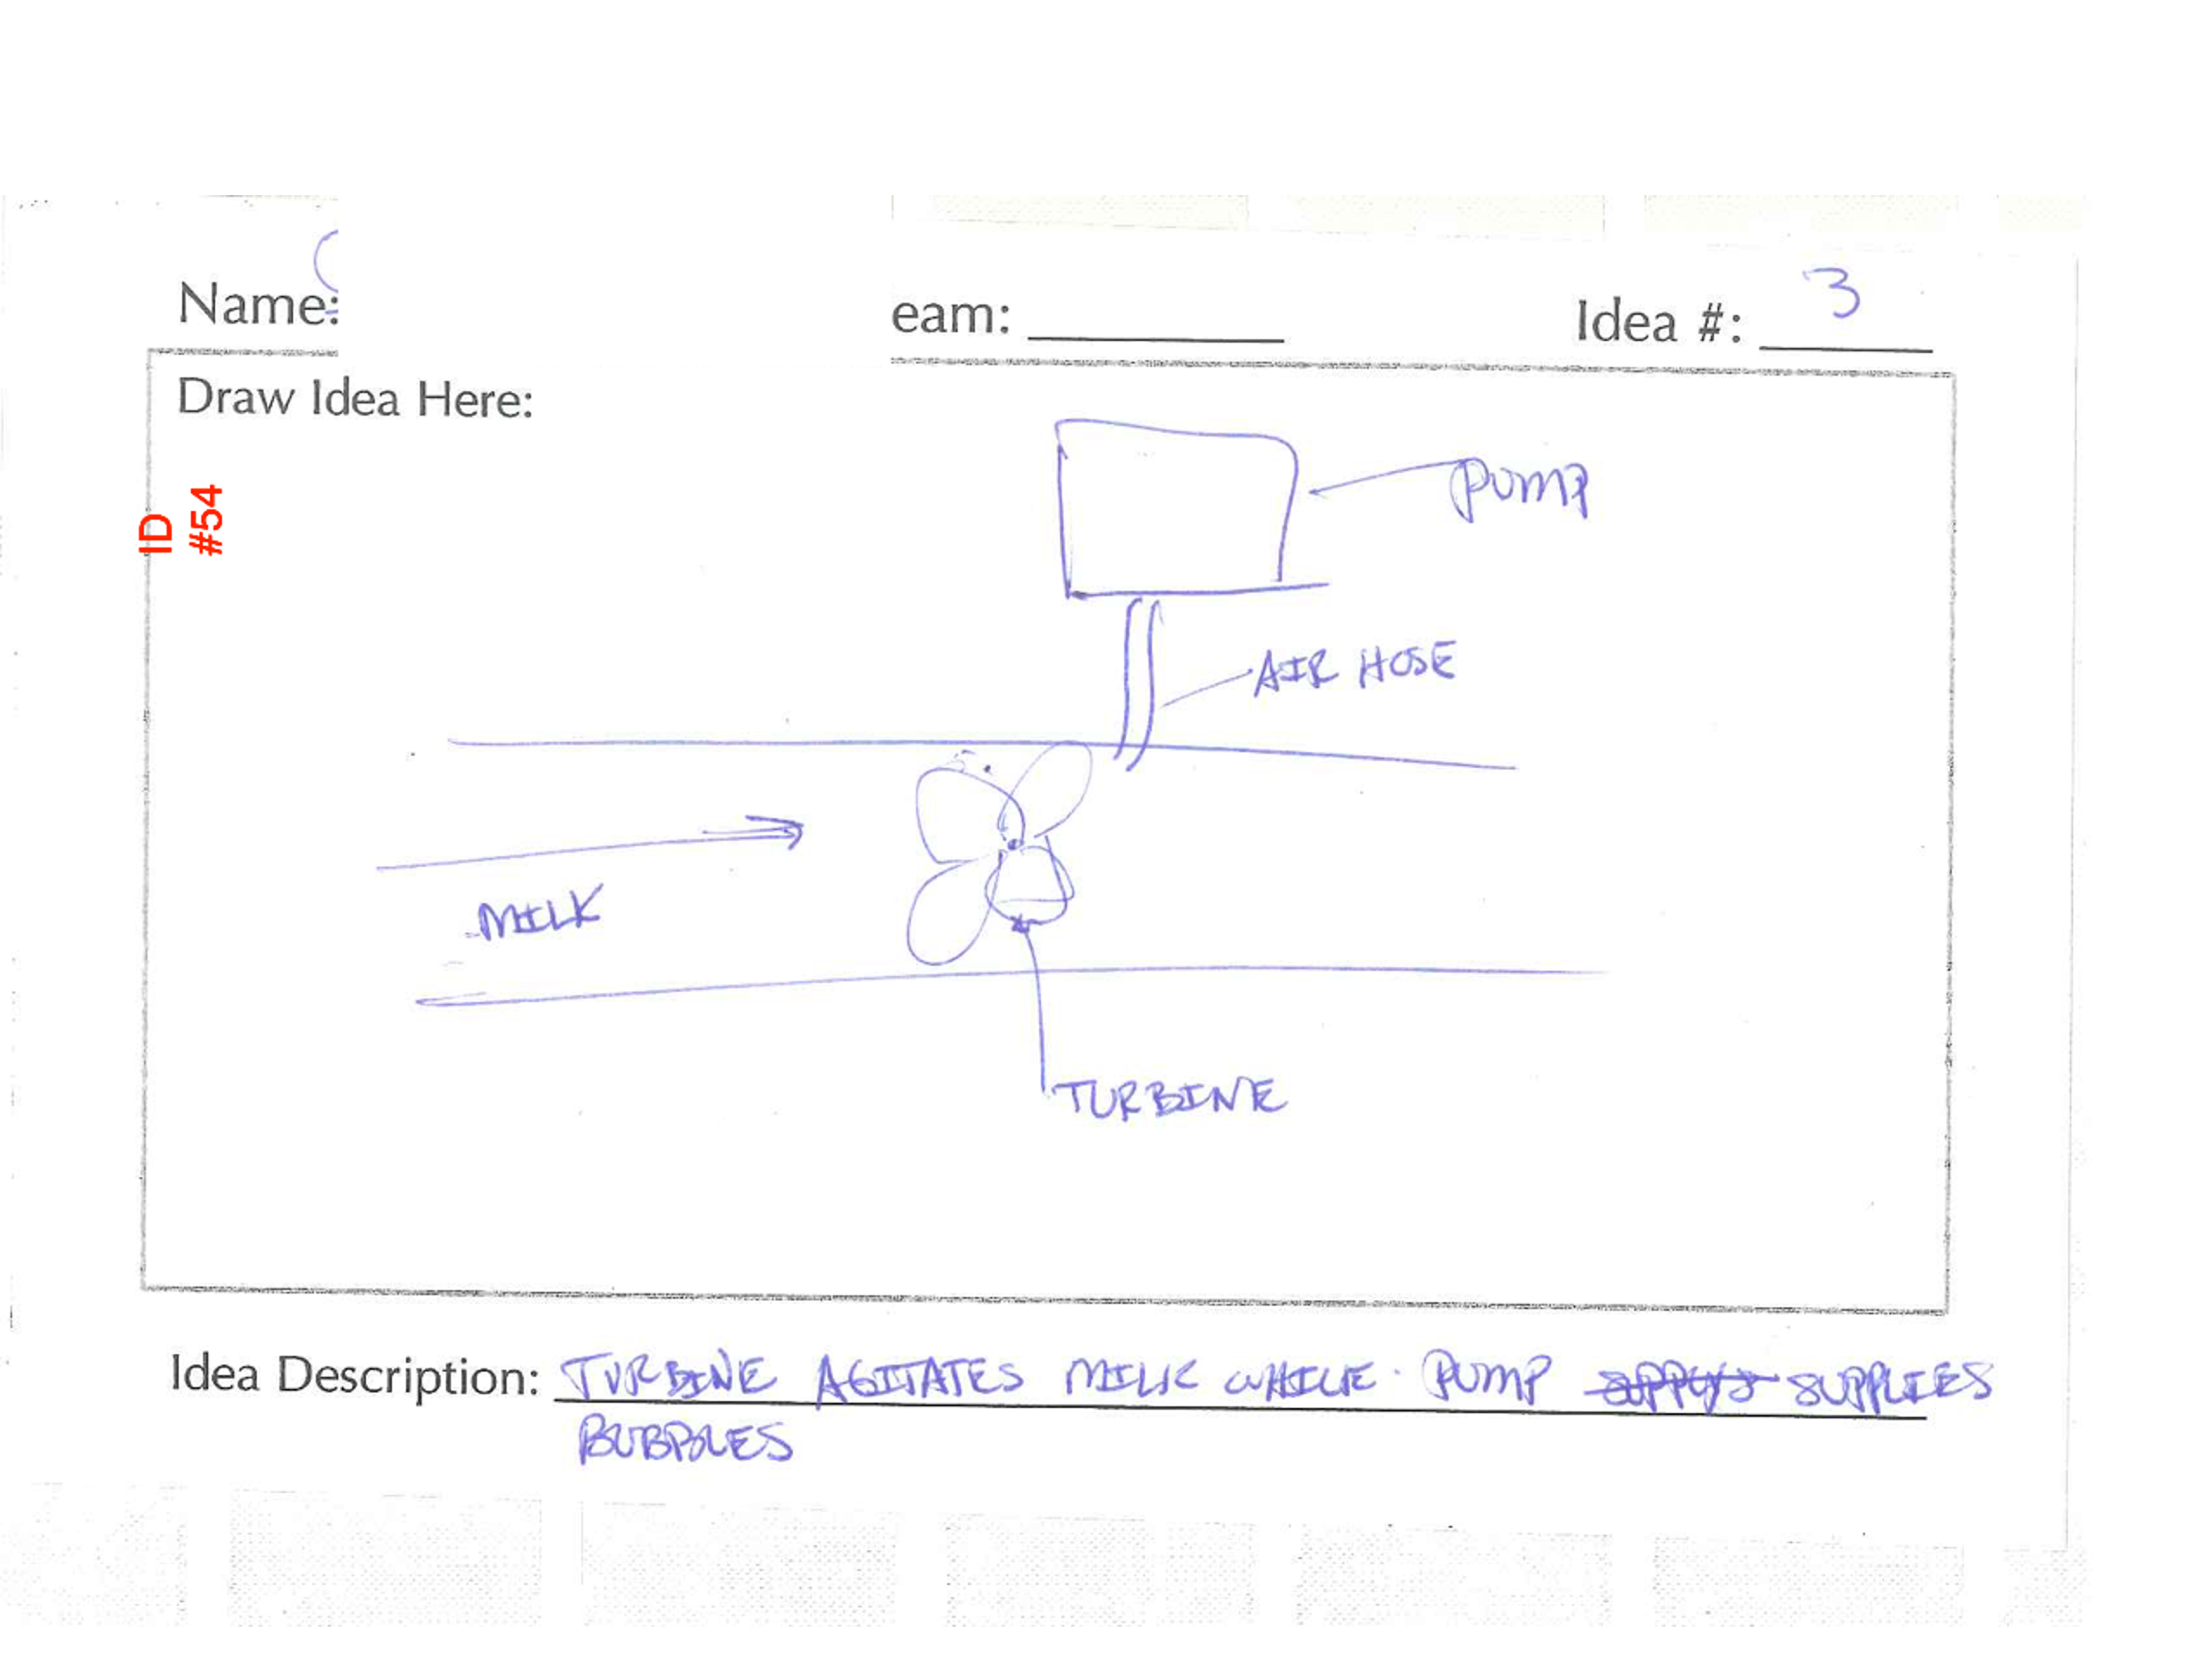 Name:
eam:
Idea #: 3
Draw Idea Here:
ID
#54
PUMP
AIR HOSE
MILK
TURBINE
Idea Description: TURBINE AGITATES MILK WHILE PUMP SUPPLIES
BUBBLES